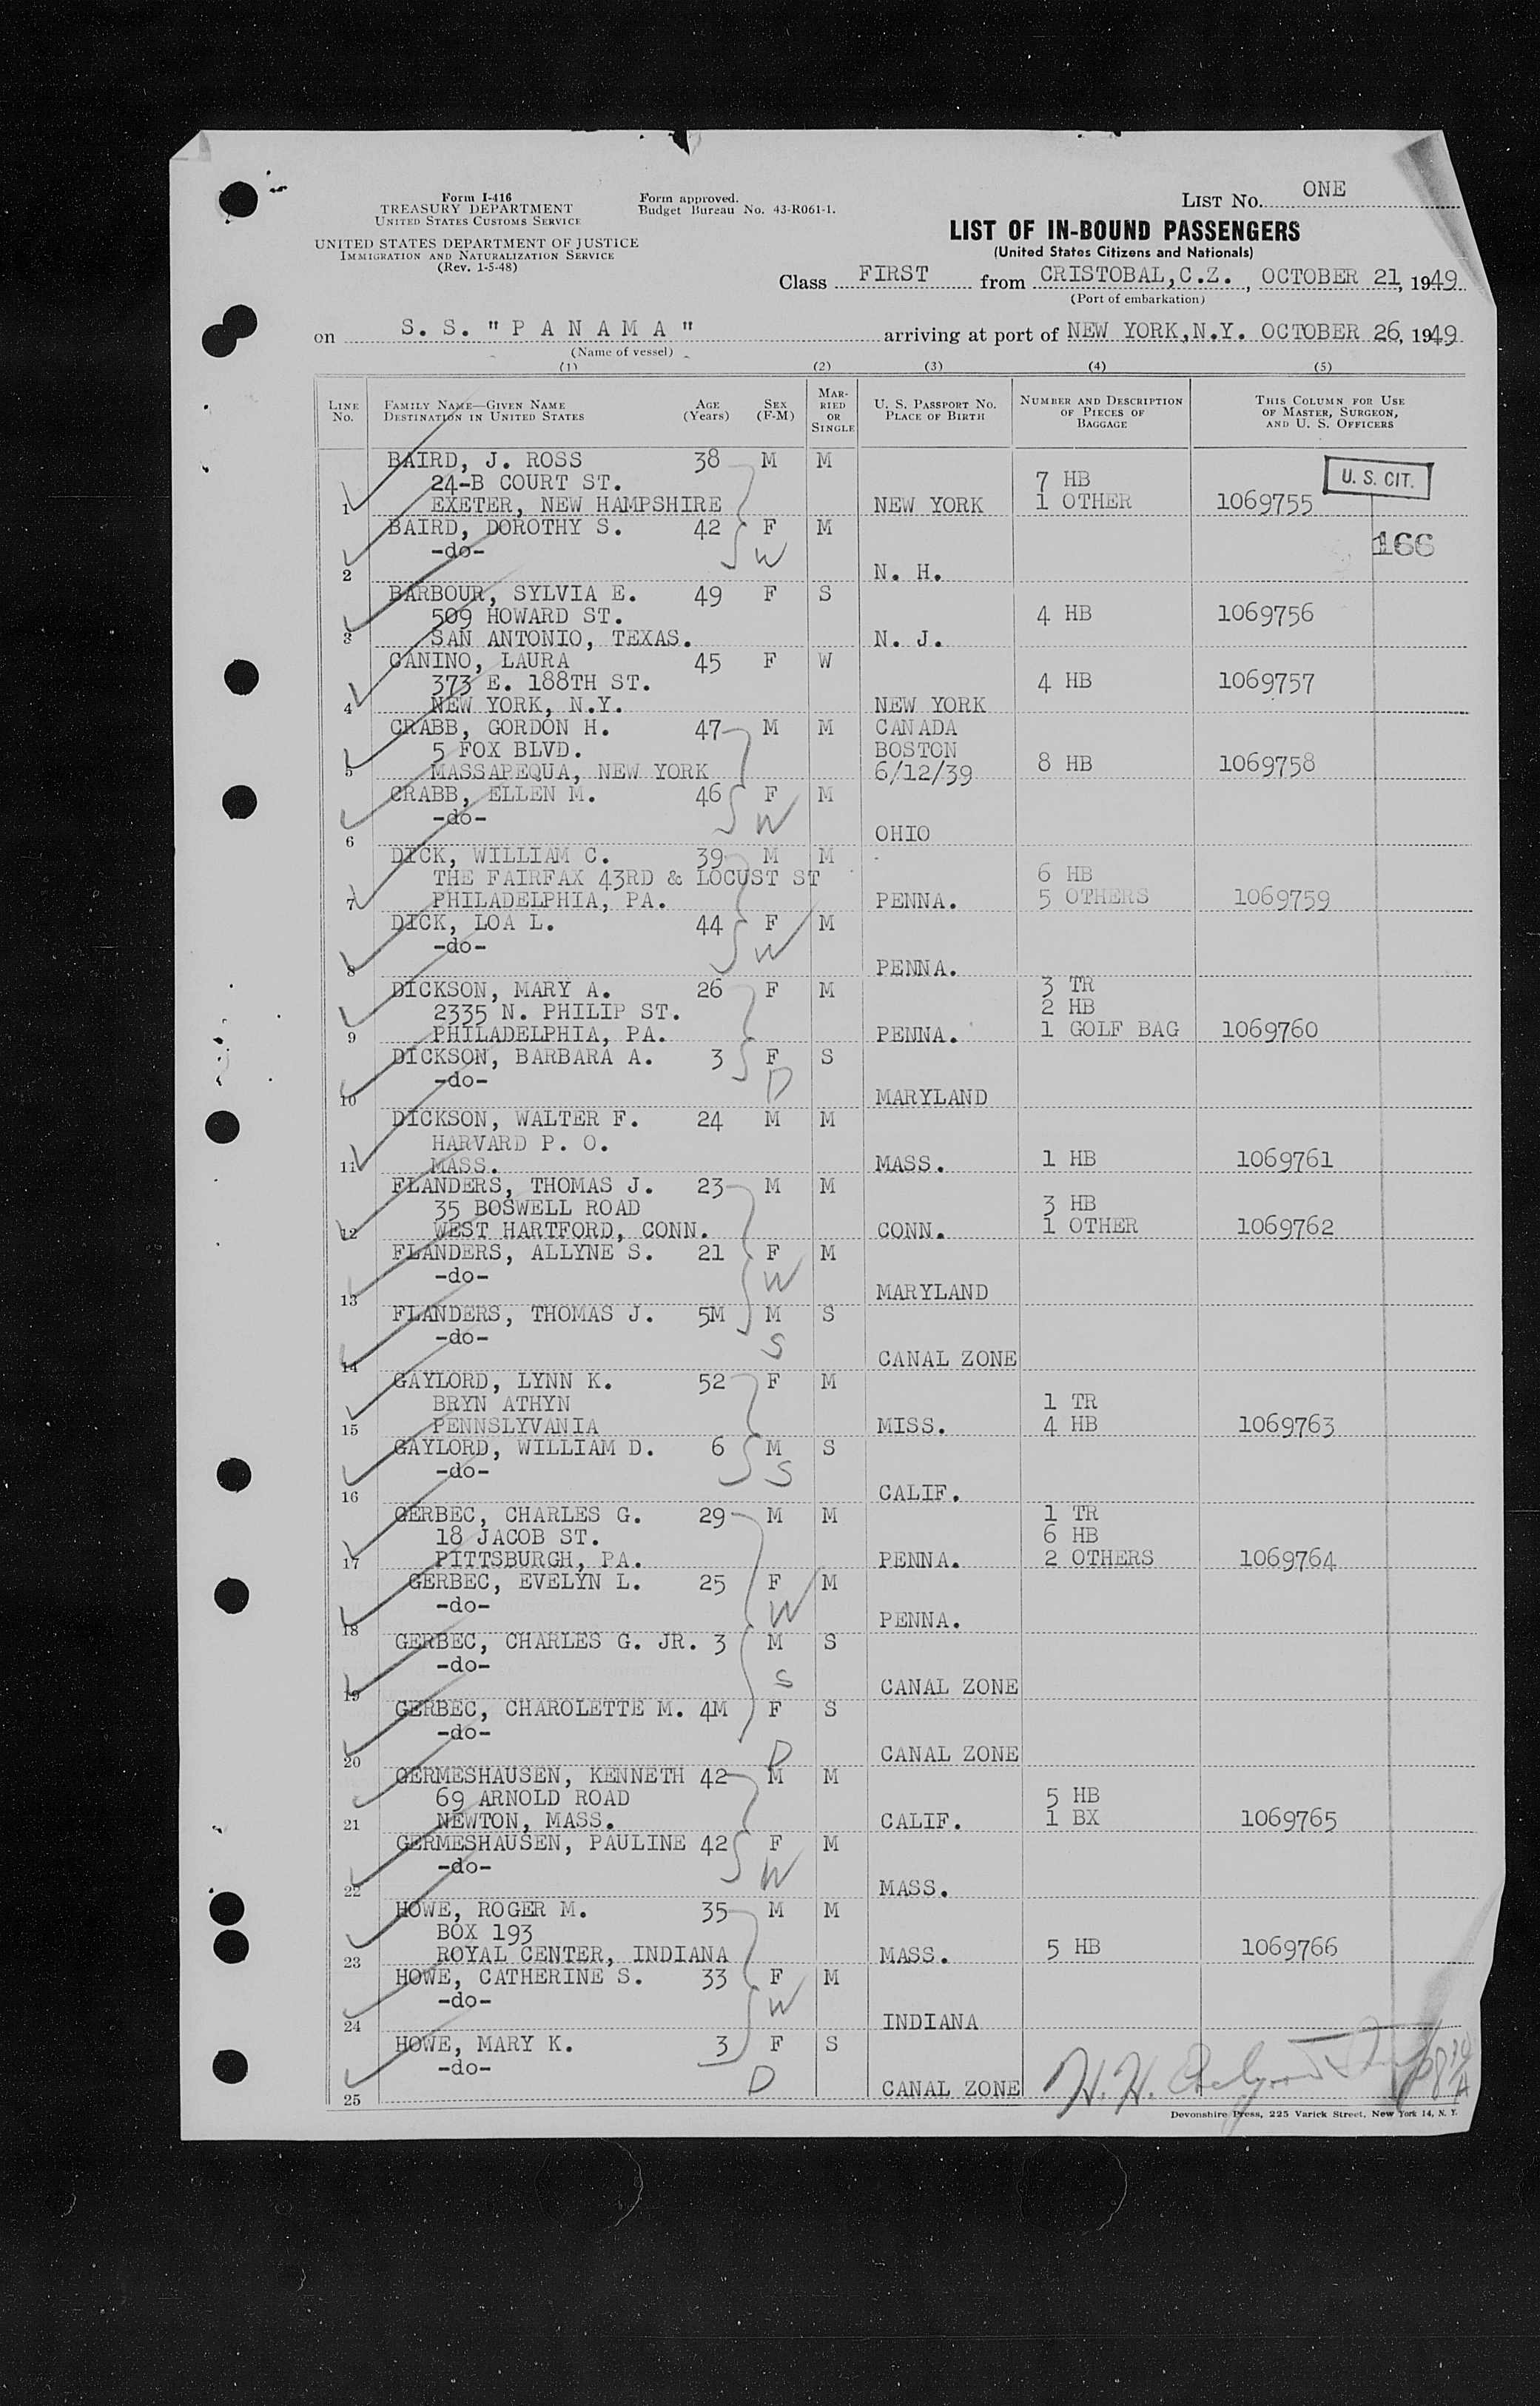 Form I-416
TREASURY DEPARTMENT
UNITED STATES CUSTOMS SERVICE
UNITED STATES DEPARTMENT OF JUSTICE
IMMIGRATION AND NATURALIZATION SERVICE
(Rev. 1-5-48)
Form approved.
Budget Bureau No. 43-R061-1.
LIST No. ONE
LIST OF IN-BOUND PASSENGERS
(United States Citizens and Nationals)
Class FIRST from CRISTOBAL, C.Z., OCTOBER 21, 1949
(Port of embarkation)
on S. S. "P A N A M A" arriving at port of NEW YORK, N.Y. OCTOBER 26, 1949
(Name of vessel)
(1) (2) (3) (4) (5)
LINE No. FAMILY NAME—GIVEN NAME DESTINATION IN UNITED STATES AGE (Years) SEX (F-M) MARRIED OR SINGLE U. S. PASSPORT NO. PLACE OF BIRTH NUMBER AND DESCRIPTION OF PIECES OF BAGGAGE THIS COLUMN FOR USE OF MASTER, SURGEON, AND U. S. OFFICERS
BAIRD, J. ROSS 38 M M
24-B COURT ST. 7 HB U. S. CIT.
1 EXETER, NEW HAMPSHIRE NEW YORK 1 OTHER 1069755
BAIRD, DOROTHY S. 42 F M
-do- W 166
2 N. H.
BARBOUR, SYLVIA E. 49 F S
509 HOWARD ST. 4 HB 1069756
3 SAN ANTONIO, TEXAS. N. J.
CANINO, LAURA 45 F W
373 E. 188TH ST. 4 HB 1069757
4 NEW YORK, N.Y. NEW YORK
CRABB, GORDON H. 47 M M CANADA
5 FOX BLVD. BOSTON
5 MASSAPEQUA, NEW YORK 6/12/39 8 HB 1069758
CRABB, ELLEN M. 46 F M
-do- W
6 OHIO
DICK, WILLIAM C. 39 M M
THE FAIRFAX 43RD & LOCUST ST 6 HB
7 PHILADELPHIA, PA. PENNA. 5 OTHERS 1069759
DICK, LOA L. 44 F M
-do- W
8 PENNA.
DICKSON, MARY A. 26 F M 3 TR
2335 N. PHILIP ST. 2 HB
9 PHILADELPHIA, PA. PENNA. 1 GOLF BAG 1069760
DICKSON, BARBARA A. 3 F S
-do- D
10 MARYLAND
DICKSON, WALTER F. 24 M M
HARVARD P. O.
11 MASS. MASS. 1 HB 1069761
FLANDERS, THOMAS J. 23 M M
35 BOSWELL ROAD 3 HB
12 WEST HARTFORD, CONN. CONN. 1 OTHER 1069762
FLANDERS, ALLYNE S. 21 F M
-do- W
13 MARYLAND
FLANDERS, THOMAS J. 5M M S
-do- S
14 CANAL ZONE
GAYLORD, LYNN K. 52 F M
BRYN ATHYN 1 TR
15 PENNSLYVANIA MISS. 4 HB 1069763
GAYLORD, WILLIAM D. 6 M S
-do- S
16 CALIF.
GERBEC, CHARLES G. 29 M M 1 TR
18 JACOB ST. 6 HB
17 PITTSBURGH, PA. PENNA. 2 OTHERS 1069764
GERBEC, EVELYN L. 25 F M
-do- W
18 PENNA.
GERBEC, CHARLES G. JR. 3 M S
-do- S
19 CANAL ZONE
GERBEC, CHAROLETTE M. 4M F S
-do- D
20 CANAL ZONE
GERMESHAUSEN, KENNETH 42 M M
69 ARNOLD ROAD 5 HB
21 NEWTON, MASS. CALIF. 1 BX 1069765
GERMESHAUSEN, PAULINE 42 F M
-do- W
22 MASS.
HOWE, ROGER M. 35 M M
BOX 193
23 ROYAL CENTER, INDIANA MASS. 5 HB 1069766
HOWE, CATHERINE S. 33 F M
-do- W
24 INDIANA
HOWE, MARY K. 3 F S
-do- D
25 CANAL ZONE H. H.
Devonshire Press, 225 Varick Street, New York 14, N. Y.